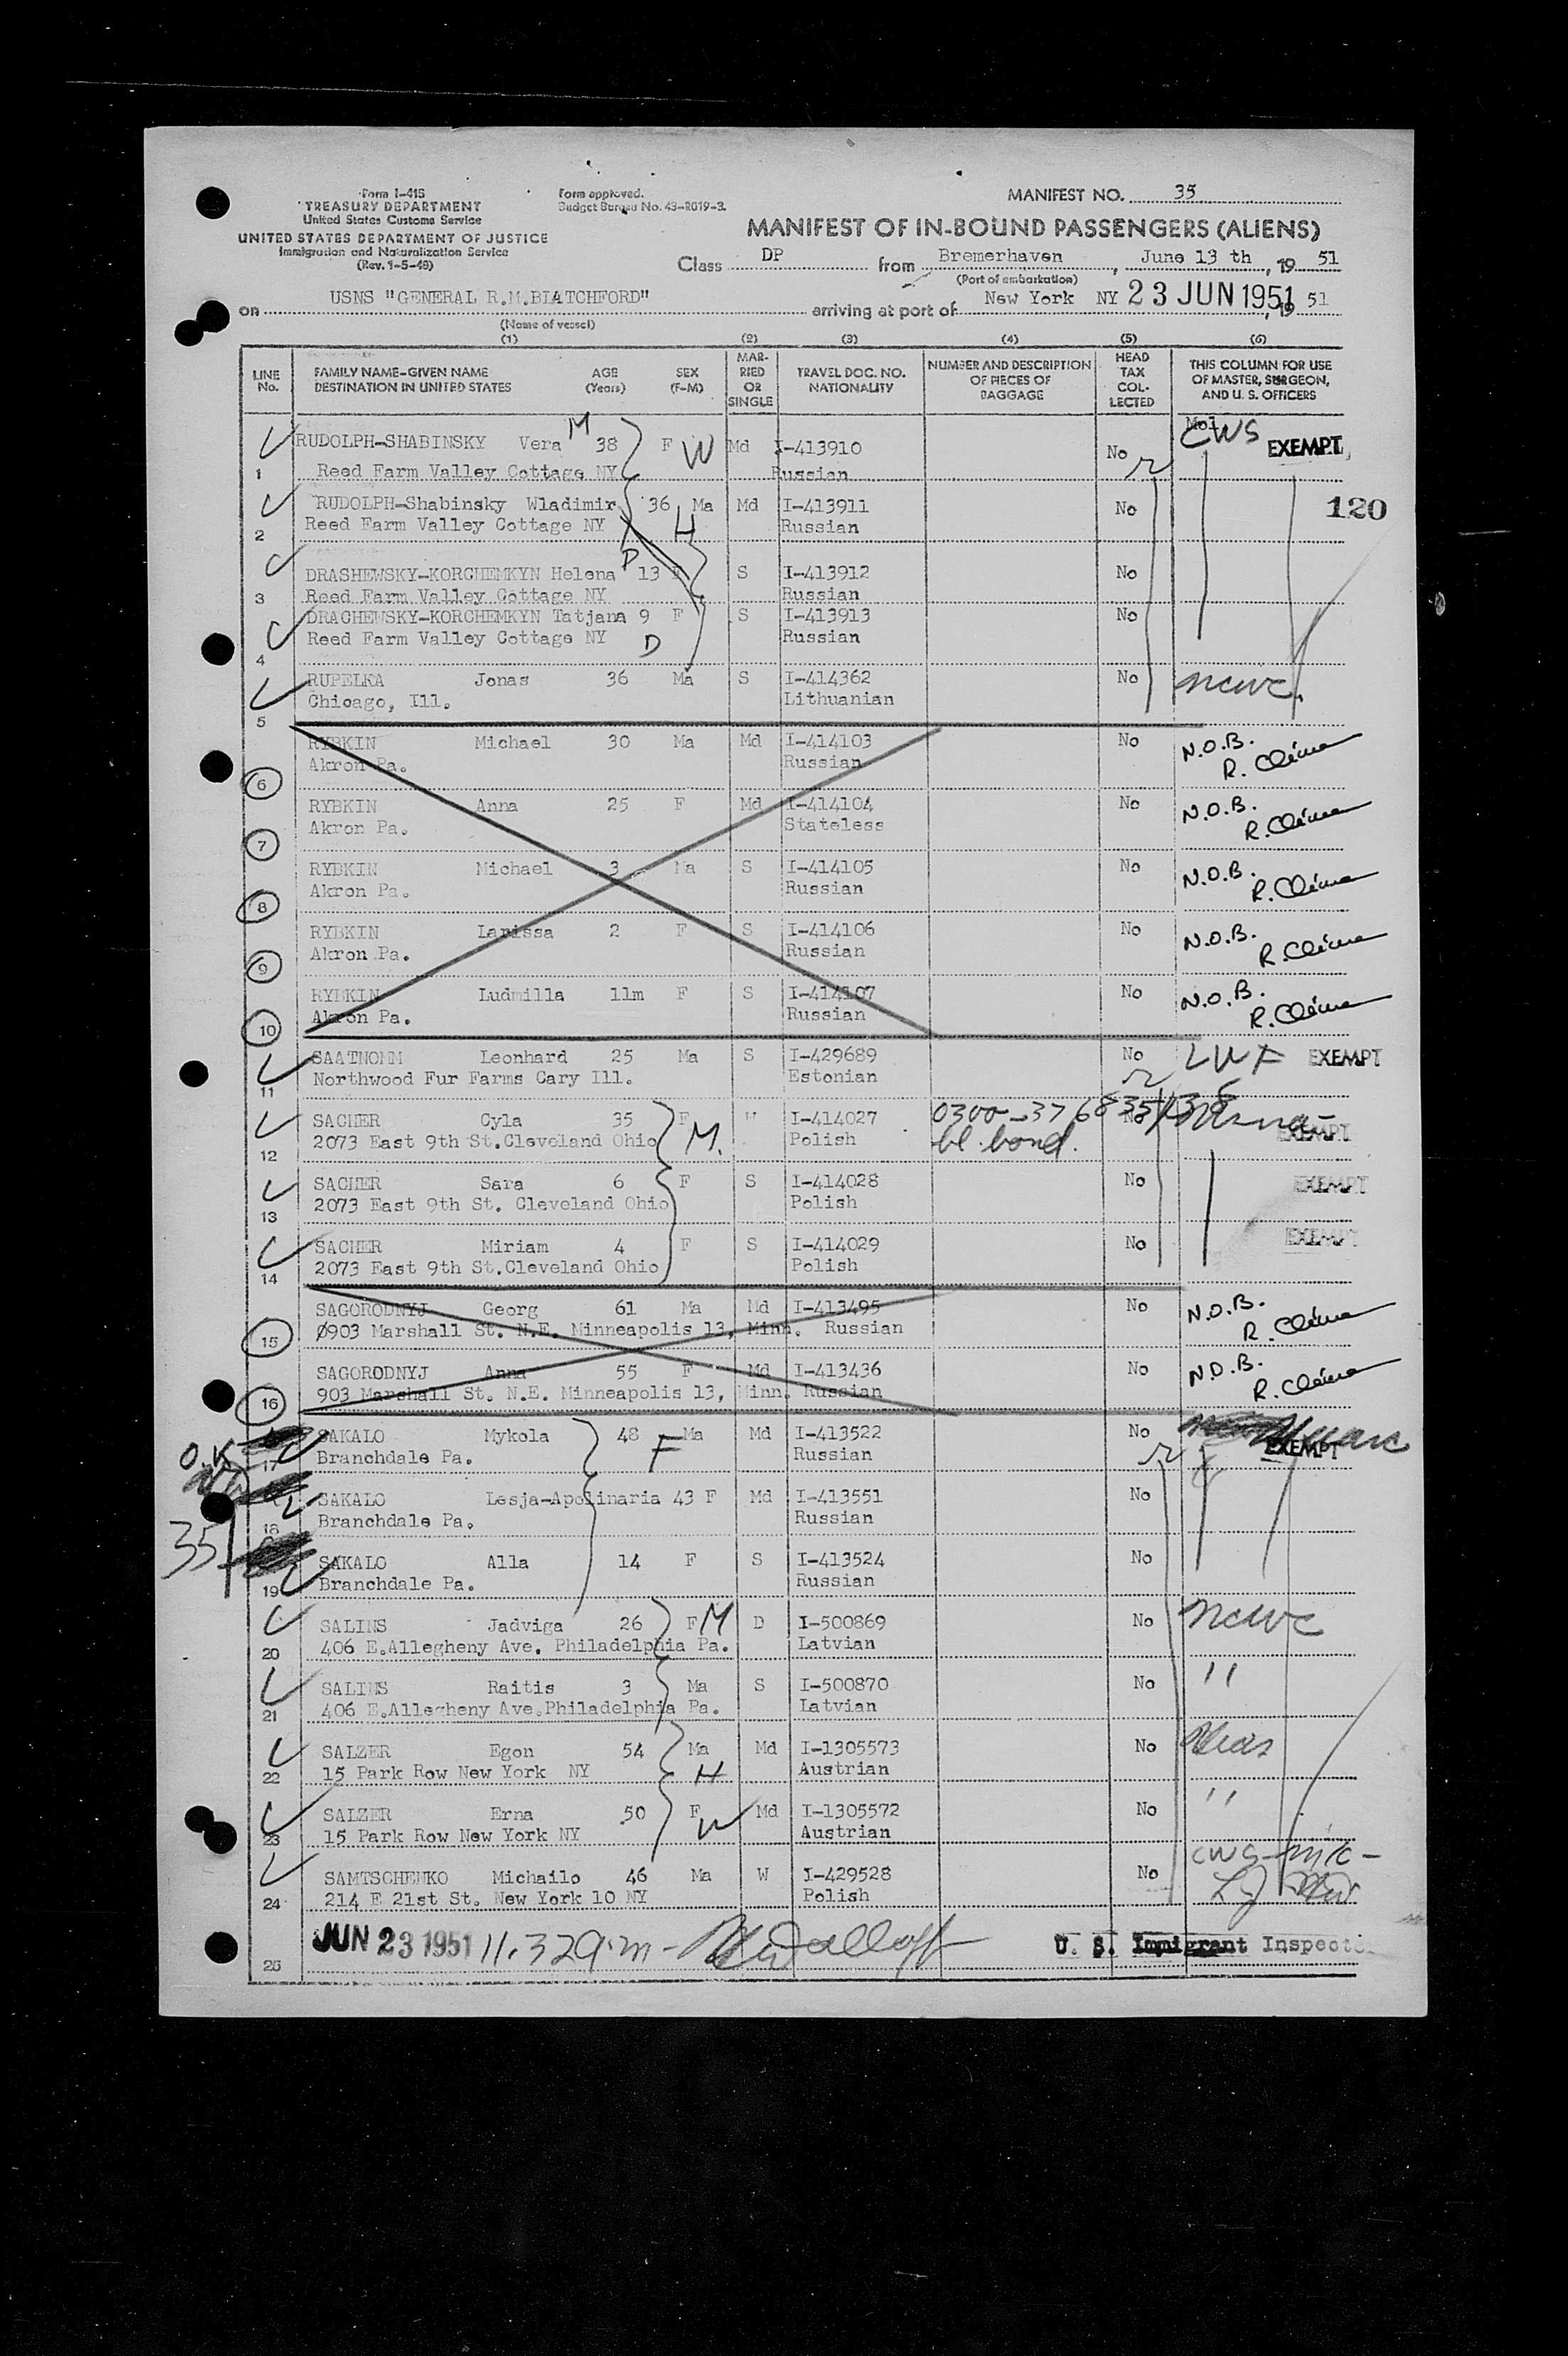 Form I-418
TREASURY DEPARTMENT
United States Customs Service
UNITED STATES DEPARTMENT OF JUSTICE
Immigration and Naturalization Service
(Rev. 1-5-48)
Form approved.
Budget Bureau No. 43-R019-3.
MANIFEST NO. 35
MANIFEST OF IN-BOUND PASSENGERS (ALIENS)
Class DP from Bremerhaven, June 13 th, 19 51
(Port of embarkation)
on USNS "GENERAL R.M.BLATCHFORD" arriving at port of New York NY 23 JUN 1951, 19 51
(Name of vessel)
(1) (2) (3) (4) (5) (6)
LINE No.
FAMILY NAME-GIVEN NAME DESTINATION IN UNITED STATES
AGE (Years)
SEX (F-M)
MARRIED OR SINGLE
TRAVEL DOC. NO. NATIONALITY
NUMBER AND DESCRIPTION OF PIECES OF BAGGAGE
HEAD TAX COLLECTED
THIS COLUMN FOR USE OF MASTER, SURGEON, AND U. S. OFFICERS
RUDOLPH-SHABINSKY Vera M 38 F W Md I-413910 No CWS EXEMPT
1 Reed Farm Valley Cottage NY Russian
RUDOLPH-Shabinsky Wladimir 36 Ma H Md I-413911 No 120
2 Reed Farm Valley Cottage NY Russian
DRASHEWSKY-KORCHEMKYN Helena D 13 F S I-413912 No
3 Reed Farm Valley Cottage NY Russian
DRACHEWSKY-KORCHEMKYN Tatjana 9 F S I-413913 No
4 Reed Farm Valley Cottage NY D Russian
RUPELKA Jonas 36 Ma S I-414362 No NCWC
5 Chicago, Ill. Lithuanian
RYBKIN Michael 30 Ma Md I-414103 No N.O.B.
6 Akron Pa. Russian
RYBKIN Anna 25 F Md I-414104 No N.O.B.
7 Akron Pa. Stateless
RYBKIN Michael 3 Ma S I-414105 No N.O.B.
8 Akron Pa. Russian
RYBKIN Larissa 2 F S I-414106 No N.O.B.
9 Akron Pa. Russian
RYBKIN Ludmilla 11m F S I-414107 No N.O.B.
10 Akron Pa. Russian
SAATNOHM Leonhard 25 Ma S I-429689 No LWF EXEMPT
11 Northwood Fur Farms Cary Ill. Estonian
SACHER Cyla 35 F M. W I-414027 No
12 2073 East 9th St.Cleveland Ohio Polish bl. bond. EXEMPT
SACHER Sara 6 F S I-414028 No EXEMPT
13 2073 East 9th St. Cleveland Ohio Polish
SACHER Miriam 4 F S I-414029 No EXEMPT
14 2073 East 9th St.Cleveland Ohio Polish
SAGORODNYJ Georg 61 Ma Md I-413495 No N.O.B.
15 903 Marshall St. N.E. Minneapolis 13, Minn. Russian
SAGORODNYJ Anna 55 F Md I-413436 No N.O.B.
16 903 Marshall St. N.E. Minneapolis 13, Minn. Russian
SAKALO Mykola 48 F Ma Md I-413522 No EXEMPT
O.K 17 Branchdale Pa. Russian
SAKALO Lesja-Apolinaria 43 F Md I-413551 No
18 Branchdale Pa. Russian
35 SAKALO Alla 14 F S I-413524 No
19 Branchdale Pa. Russian
SALINS Jadviga 26 F M D I-500869 No NCWC
20 406 E.Allegheny Ave. Philadelphia Pa. Latvian
SALINS Raitis 3 Ma S I-500870 No "
21 406 E.Allegheny Ave.Philadelphia Pa. Latvian
SALZER Egon 54 Ma H Md I-1305573 No Hias
22 15 Park Row New York NY Austrian
SALZER Erna 50 F W Md I-1305572 No "
23 15 Park Row New York NY Austrian
SAMTSCHENKO Michailo 46 Ma W I-429528 No CWS
24 214 E 21st St. New York 10 NY Polish
JUN 23 1951 U. S. Immigrant Inspector
25